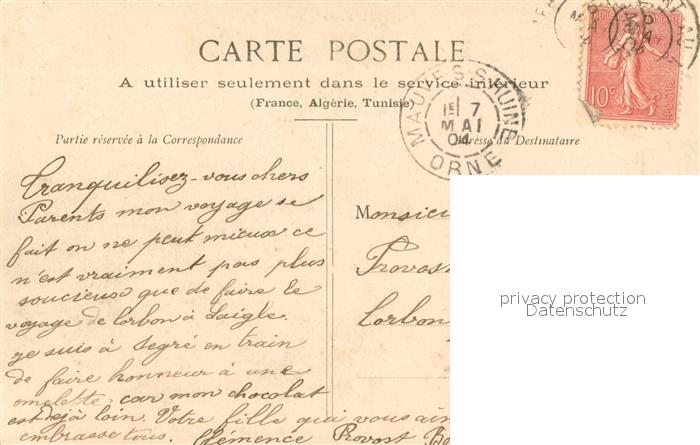 CARTE POSTALE
A utiliser seulement dans le service intérieur
(France, Algérie, Tunisie)
Partie réservée à la Correspondance
Adresse du Destinataire
MAUVES S HUINE
1E 7
MAI
04
ORNE
10c
Tranquilisez-vous chers
Parents mon voyage se
fait on ne peut mieux ce
n'est vraiment pas plus
soucieux que de faire le
voyage de Corbon à Laigle.
je suis à Segré en train
de faire honneur à une
omelette, car mon chocolat
est déjà loin. Votre fille qui vous aim
embrasse tous. Clémence Provost
Monsieu
Provost
Corbon
privacy protection
Datenschutz